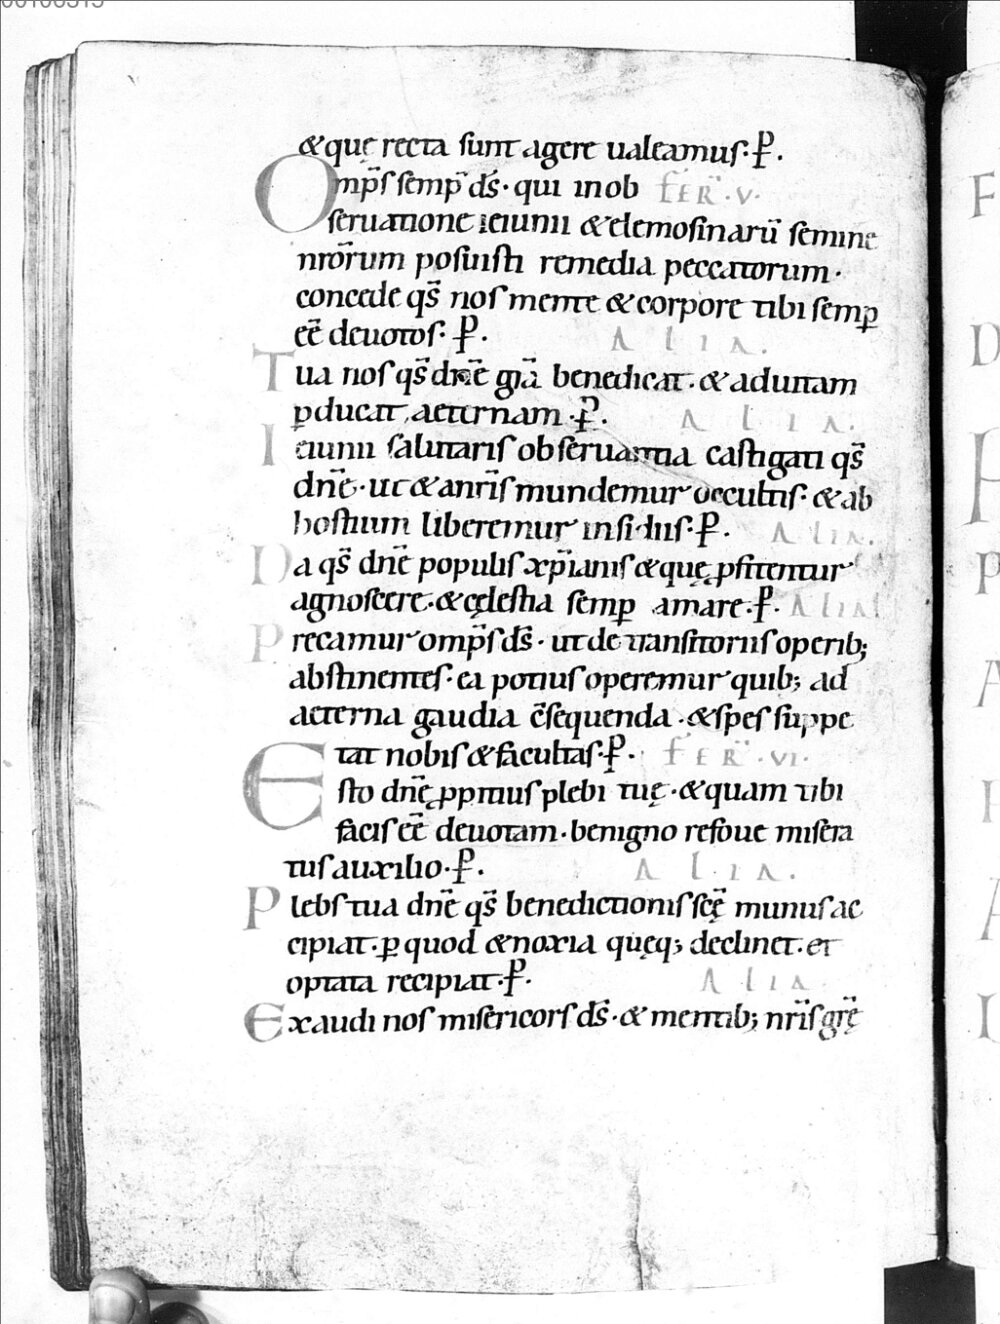 &quę recta sunt agere ualeamus· P̄.
Omp̄s semp̄ ds̄· qui inob FER̄·V·
seruatione ieiunii &elemosinarū semine
nrōrum posuisti remedia peccatorum·
concede qs̄ nos mente &corpore tibi semꝑ
eē deuotos· P̄· ALIA.
Tua nos qs̄ dn̄e grā benedicat·&aduitam
ꝑducat aeternam· P̄· ALIA.
Ieiunii salutaris obseruantia castigati qs̄
dn̄e·ut&anr̄is mundemur occultis·&ab
hostium liberemur insidiis· P̄· ALIA.
Da qs̄ dn̄e populis xp̄ianis&quę ꝓfitentur
agnoscere·&cęlestia semꝑ amare· P̄· ALIA
Precamur omp̄s ds̄· utde transitoriis operib;
abstinentes· ea potius operemur quib; ad
aeterna gaudia c̄sequenda·&spes suppe
tat nobis&facultas· P̄· FER̄·VI·
Esto dn̄e ꝓpitius plebi tuę·&quam tibi
facis eē deuotam·benigno refoue misera
tus auxilio· P̄· ALIA.
Plebs tua dn̄e qs̄ benedictionis scę̄ munus ac
cipiat·ꝑ quod &noxia quęq; declinet·et
optata recipiat· P̄· ALIA
Exaudi nos misericors ds̄·&mentib; nr̄is grę̄